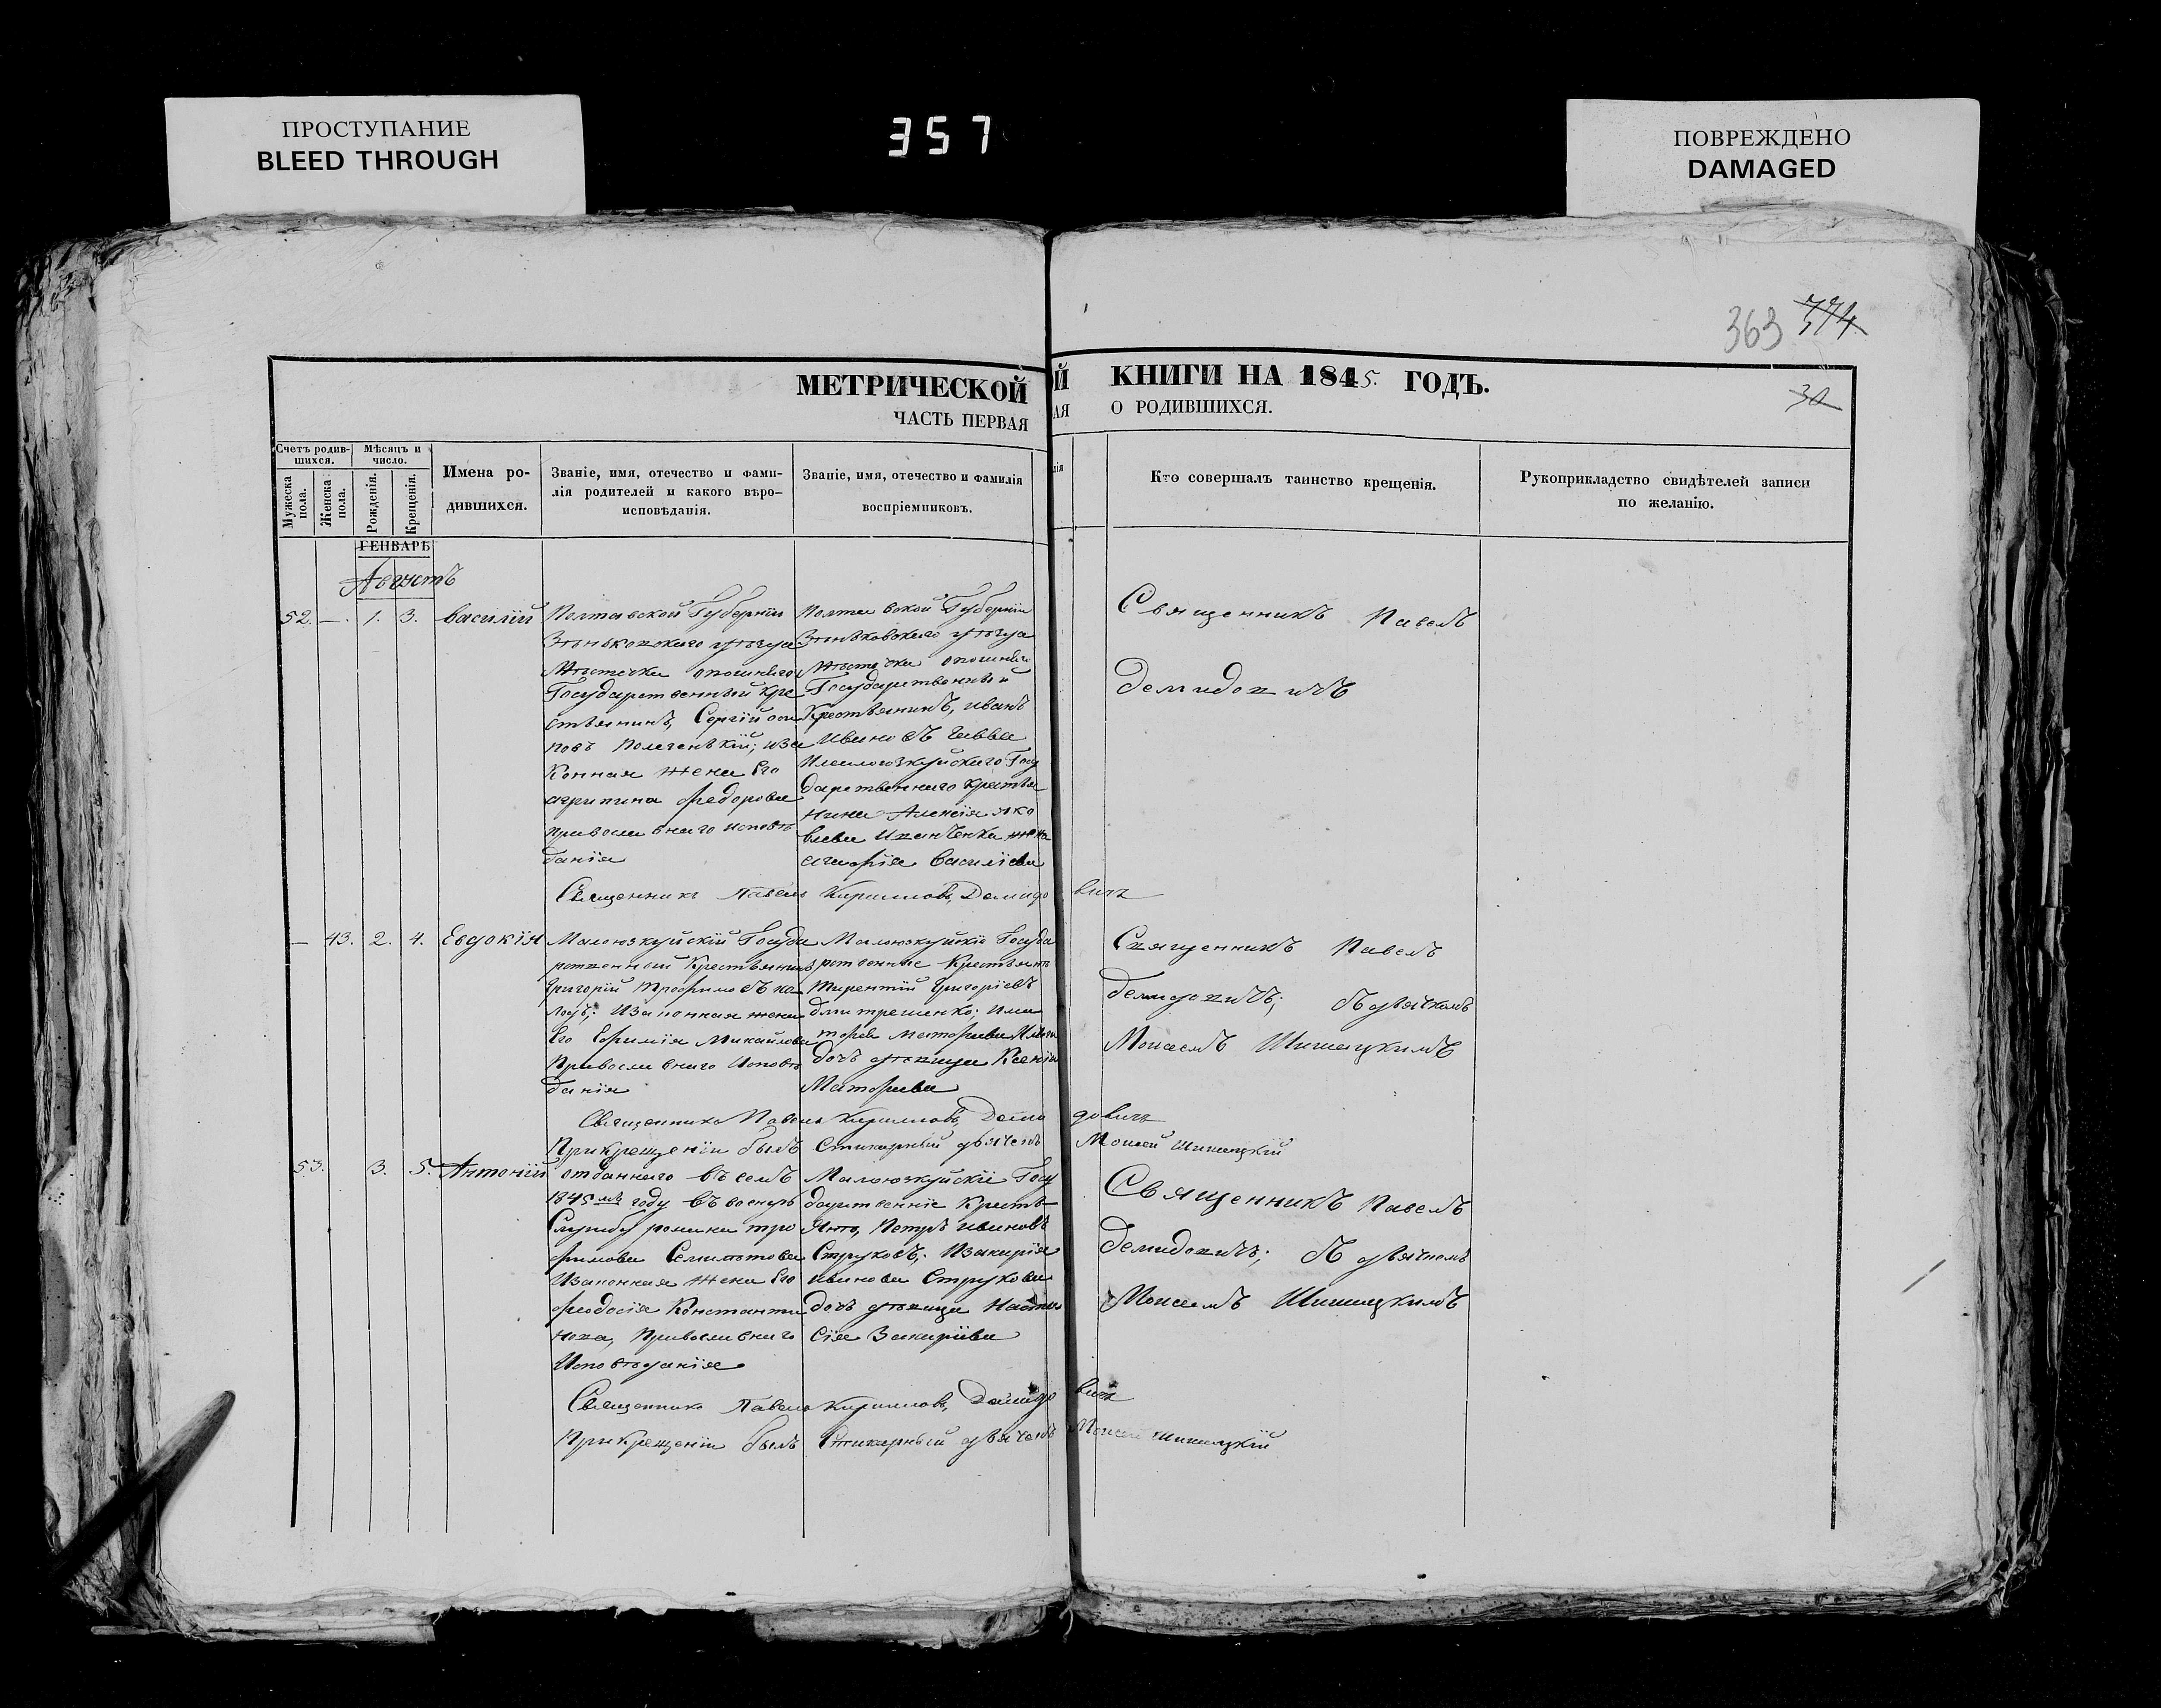 ПРОСТУПАНИЕ
BLEED THROUGH
357
ПОВРЕЖДЕНО
DAMAGED
363 774
30
МЕТРИЧЕСКОЙ
ЧАСТЬ ПЕРВАЯ
Й КНИГИ НА 1845. ГОДЪ.
АЯ О РОДИВШИХСЯ.
Счетъ родив-
шихся.
Мужеска
пола.
Женска
пола.
Мѣсяцъ и
число.
Рожденія.
Крещенія.
Имена ро-
дившихся.
Званіе, имя, отечество и фами-
лія родителей и какого вѣро-
исповѣданія.
Званіе, имя, отечество и фамилія
воспріемниковъ.
лія
Кто совершалъ таинство крещенія.
Рукоприкладство свидѣтелей записи
по желанію.
ГЕНВАРЬ
Августъ
52. —. 1. 3. Василій
Полтавской Губерніи
Зѣньковского уѣзда
Мѣстечка опошнего
Государственный кре
стьянинъ, Сергій оси
повъ
конная жена Его
агрипина федорова
православнаго исповѣ
данія
Полтавской Губерніи
Зѣньковского уѣзда
Мѣстечка опошнего
Государственный
Крестьянинъ, иванъ
ивановъ
Госу
дарственнаго крестья
нина Алексія яко
влева жена
агафія Василіева
Священникъ Павелъ
Демидовичъ
Священникъ Павелъ Кириловъ Демидо вичъ
— 43. 2. 4. Евдокія
Государ
ственный Крестьянинъ
Григорій трофимовъ
Изаконная жена
Его Ефимія Михайлова
Православнаго Исповѣ
данія
Государ
ственные Крестьяне
Терентій Григоріевъ
дмитренко;
дочь дѣвица Ксенія
Матфіева
Священникъ Павелъ
Демидовичъ; съ дьячкомъ
Моисеемъ Шишацкимъ
Священникъ Павелъ Кириловъ Деми довичъ
При крещеніи былъ Стихарный дьячекъ Моисей Шишацкій
53. 3. 5. Антоній
отданнаго въ семъ
1845мъ году въ военную
Службу романа тро
фимова
Изаконная жена Его
феодосія Константи
нова, Православнаго
Исповѣданія
Госу
дарственніе Кресть
яне, Петръ ивановъ
Струковъ; Изахарія
иванова Струкова
дочь дѣвица Наста
сія Захаріева
Священникъ Павелъ
Демидовичъ; съ дьячкомъ
Моисеемъ Шишацкимъ
Священникъ Павелъ Кириловъ, Демидо вичъ
При крещеніи былъ Стихарный дьячекъ Моисей Шишацкій